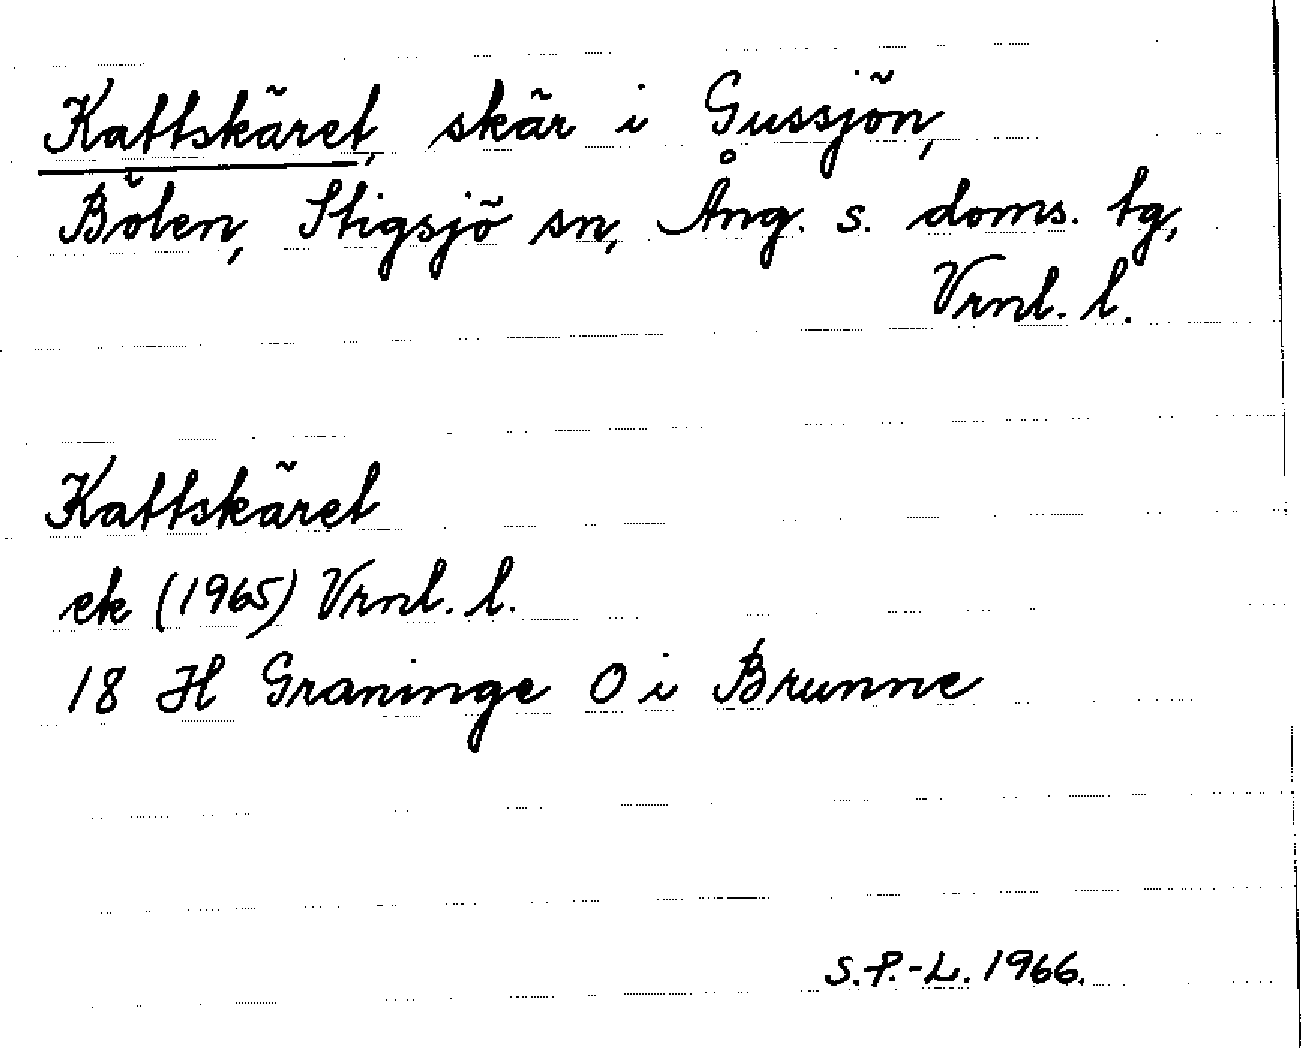 Kattskäret, skär i Gussjön,
Bölen, Stigsjö sn, Ång. s. doms. tg,
Vrnl. l.
Kattskäret
ek (1965) Vrnl. l.
18 H Graninge O i Brunne
S.P.-L. 1966.